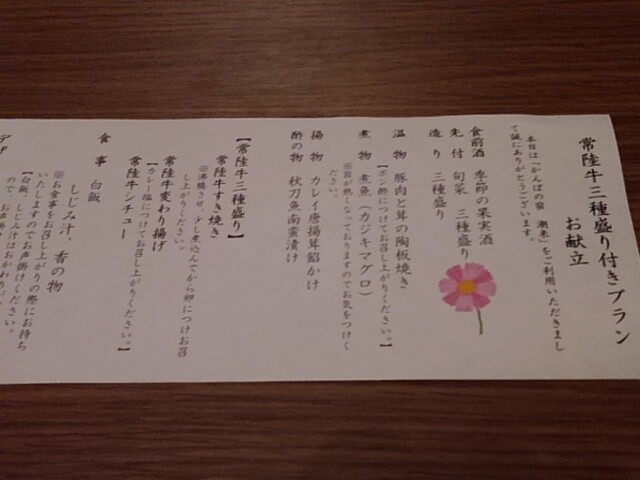 常陸牛三種盛り付きプラン
お献立
本日は「かんぽの宿 潮来」をご利用いただきまし
て誠にありがとうございます。
食前酒 季節の果実酒
先付 旬菜 三種盛り
造り 三種盛り
温物 豚肉と茸の陶板焼き
【ポン酢につけてお召し上がりください。】
煮物 煮魚（カジキマグロ）
※皿が熱くなっておりますのでお気をつけく
ださい。
揚物 カレイ唐揚茸餡かけ
酢の物 秋刀魚南蛮漬け
【常陸牛三種盛り】
常陸牛すき焼き
※沸騰させ、少し煮込んでから卵につけお召
し上がりください。
常陸牛変わり揚げ
【カレー塩につけてお召し上がりください。】
常陸牛シチュー
食事 白飯
しじみ汁、香の物
※お食事をお召し上がりの際にお持ち
いたしますのでお声掛けください。
【白飯、しじみ汁はおかわり
ので、お声掛け
デザ